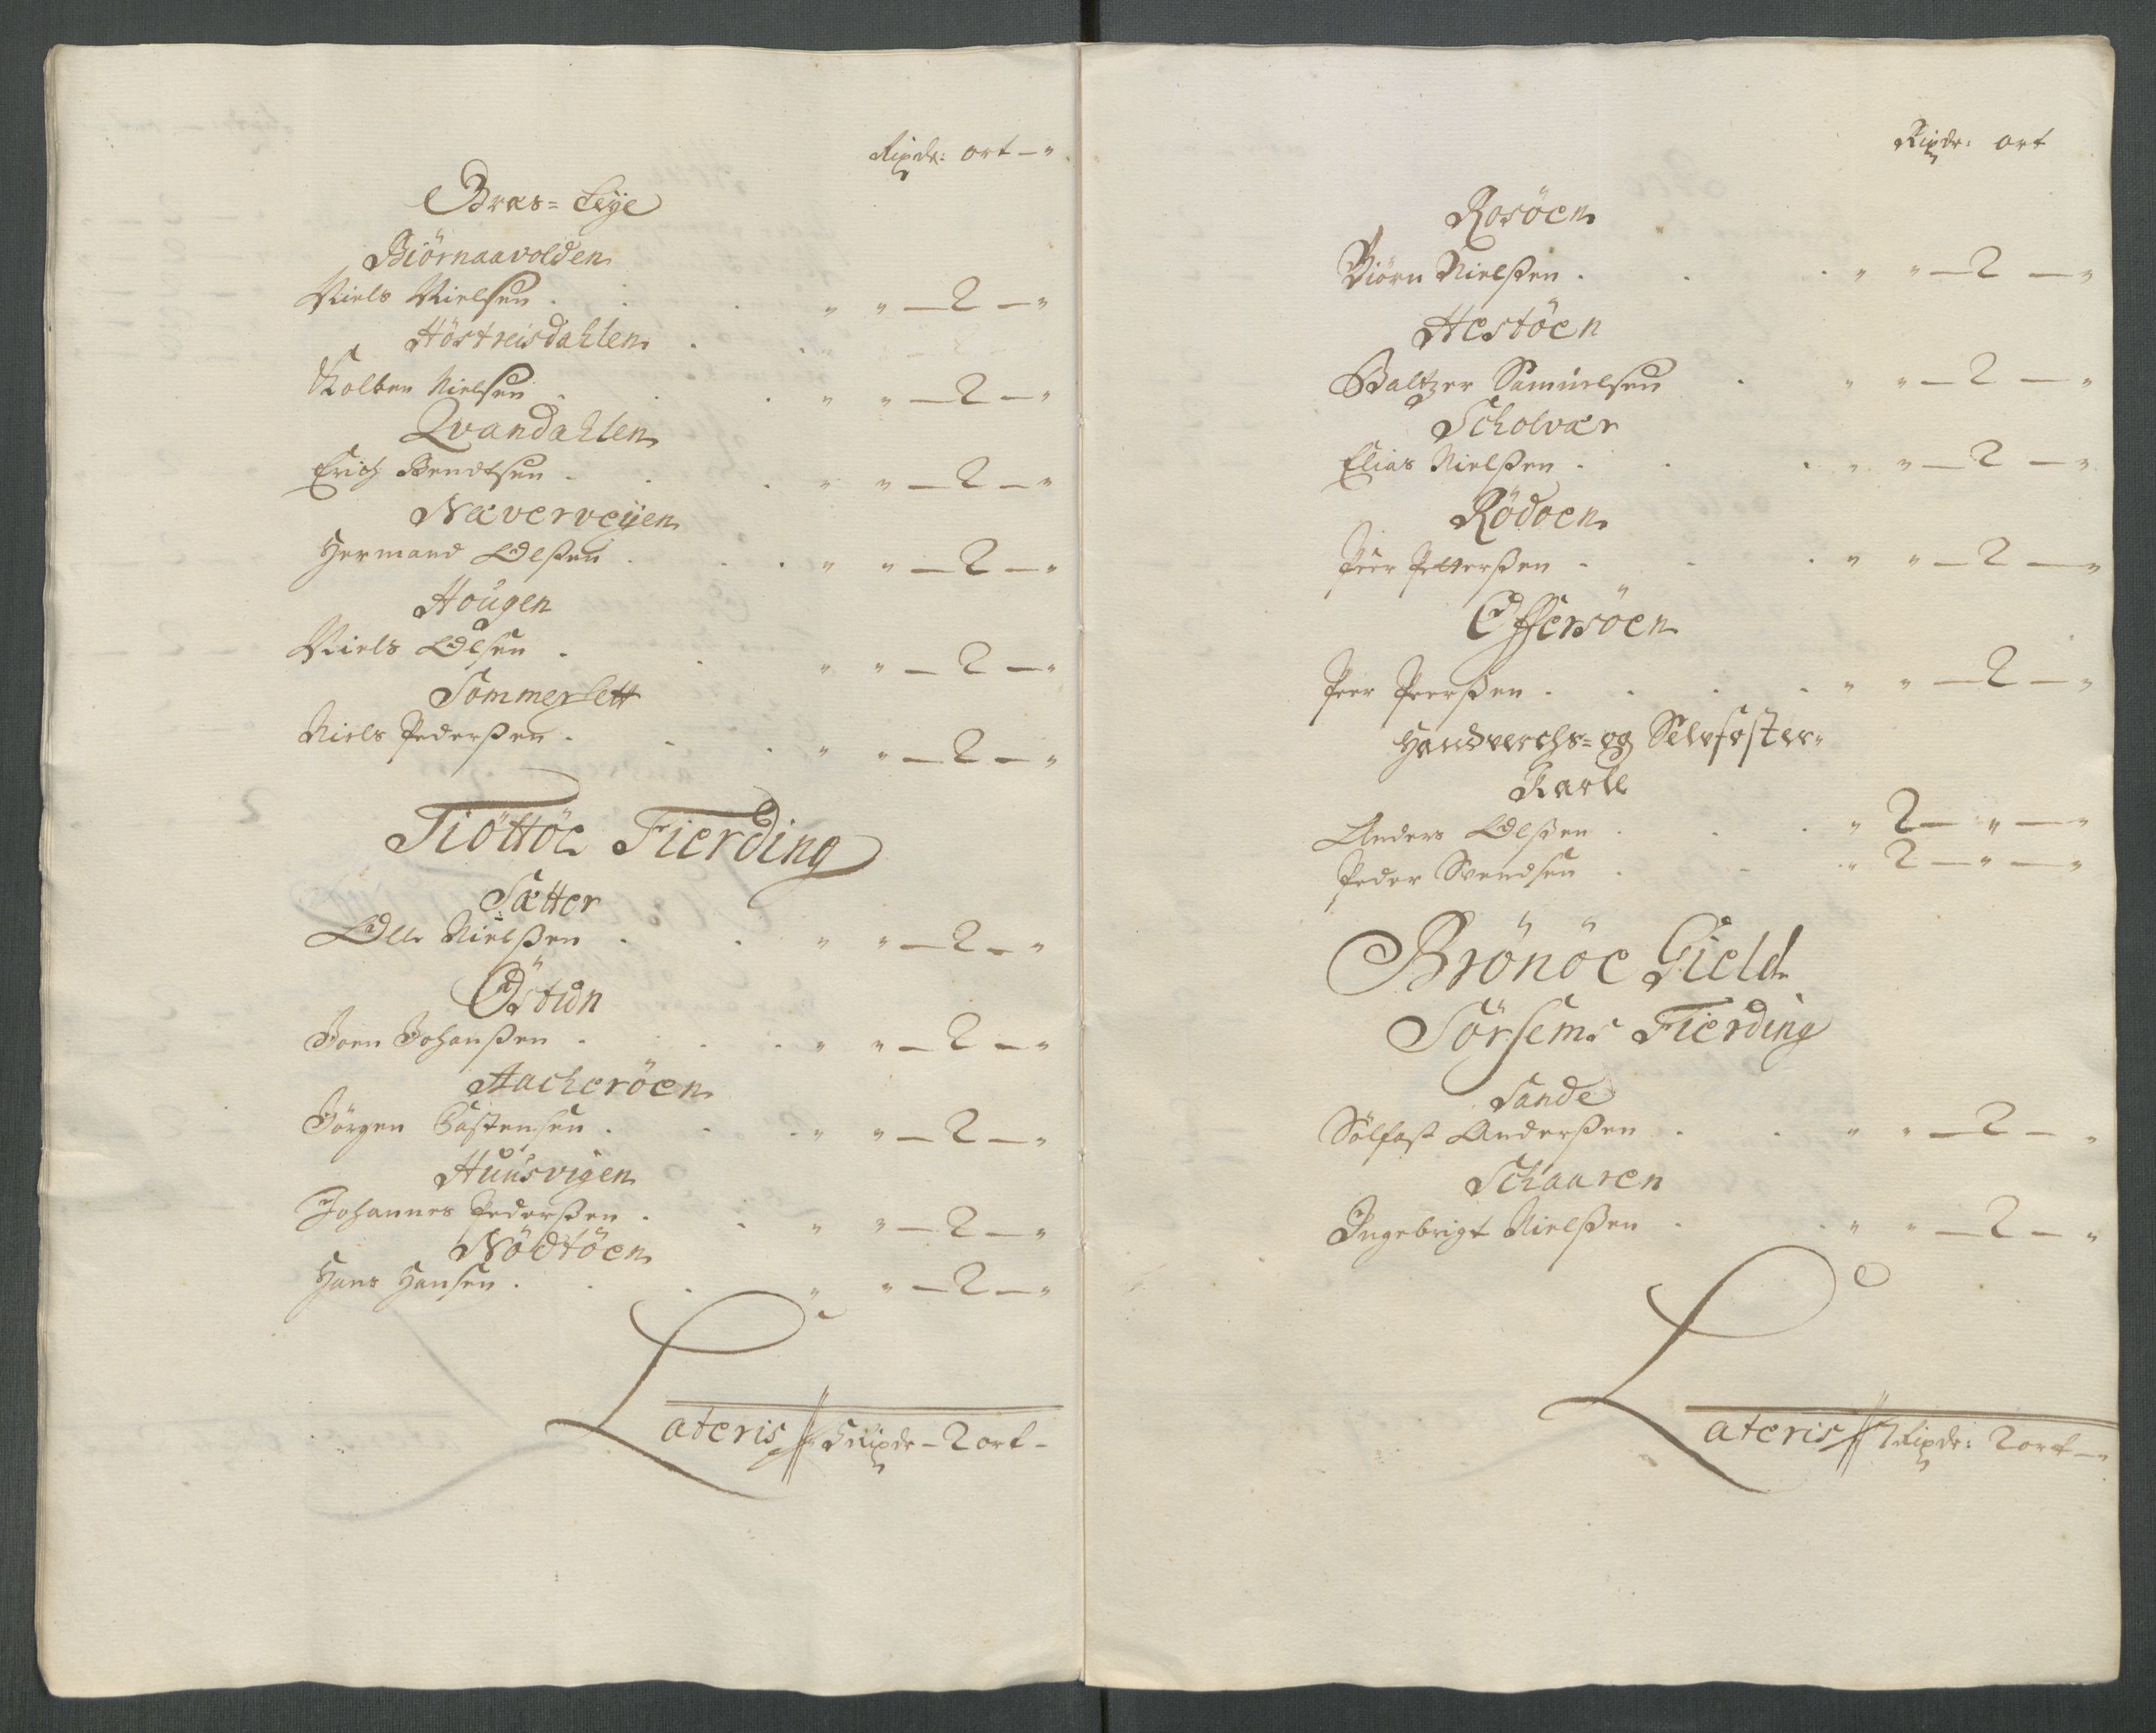 Rixdr: ort — "
Bræs = Eÿe
Biörnaavolden
Niels Nielsen . . . " " — 2 — "
Höstreisdahlen .
Kolben Nielsen . . . " " — 2 — "
Qvandahlen
Erich Bendtsen . . . " " — 2 — "
Næverveÿen
Hermand Olßen . . . " " — 2 — "
Hougen
Niels Olsen . . " " — 2 — "
Sommersett
Niels Pederßen . . . " " — 2 — "
Tiöttöe Fierding
Sætter
Olle Nielßen . . " " — 2 — "
Östun
Joen Johanßen . . . " " — 2 — "
Aacheröen
Jörgen Castensen . . . " " — 2 — "
Huusvigen
Johannes Pederßen . . " " — 2 — "
Nödtöen
Hans Hansen . . . " " — 2 — "
Lateris // 5 Rixdr — 2 ort —
Rixdr: ort
Rosöen
Biörn Nielßen . . . " " — 2 — "
Hestöen
Baltzer Samuelsen . " " — 2 — "
Scholvær
Elias Nielßen . . . " " — 2 — "
Rödöen
Peer Petterßen . . . " " — 2 — "
Offersöen
Peer Peerßen . . . . " " — 2 — "
Handverchs = og Selvfoster
Karle
Anders Olßen . . . " 2 — " — "
Peder Svendsen . . " 2 — " — "
Brönöe Gield
Sörsems Fierding
Sande
Sölfast Anderßen . . " " — 2 — "
Schaaren
Ingebrigt Nielßen . . " " — 2 — "
Lateris // 7 Rixdr: 2 ort — "